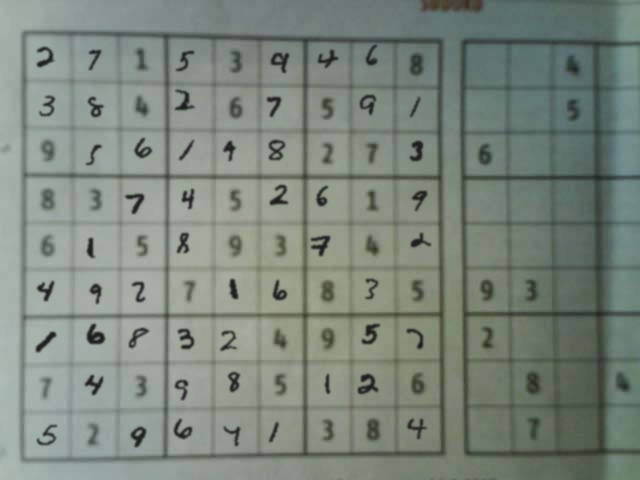 SUDOKU
2 7 1 5 3 9 4 6 8
3 8 4 2 6 7 5 9 1
9 5 6 1 4 8 2 7 3
8 3 7 4 5 2 6 1 9
6 1 5 8 9 3 7 4 2
4 9 2 7 1 6 8 3 5
1 6 8 3 2 4 9 5 7
7 4 3 9 8 5 1 2 6
5 2 9 6 7 1 3 8 4
4
5
6
9 3
2
8 4
7